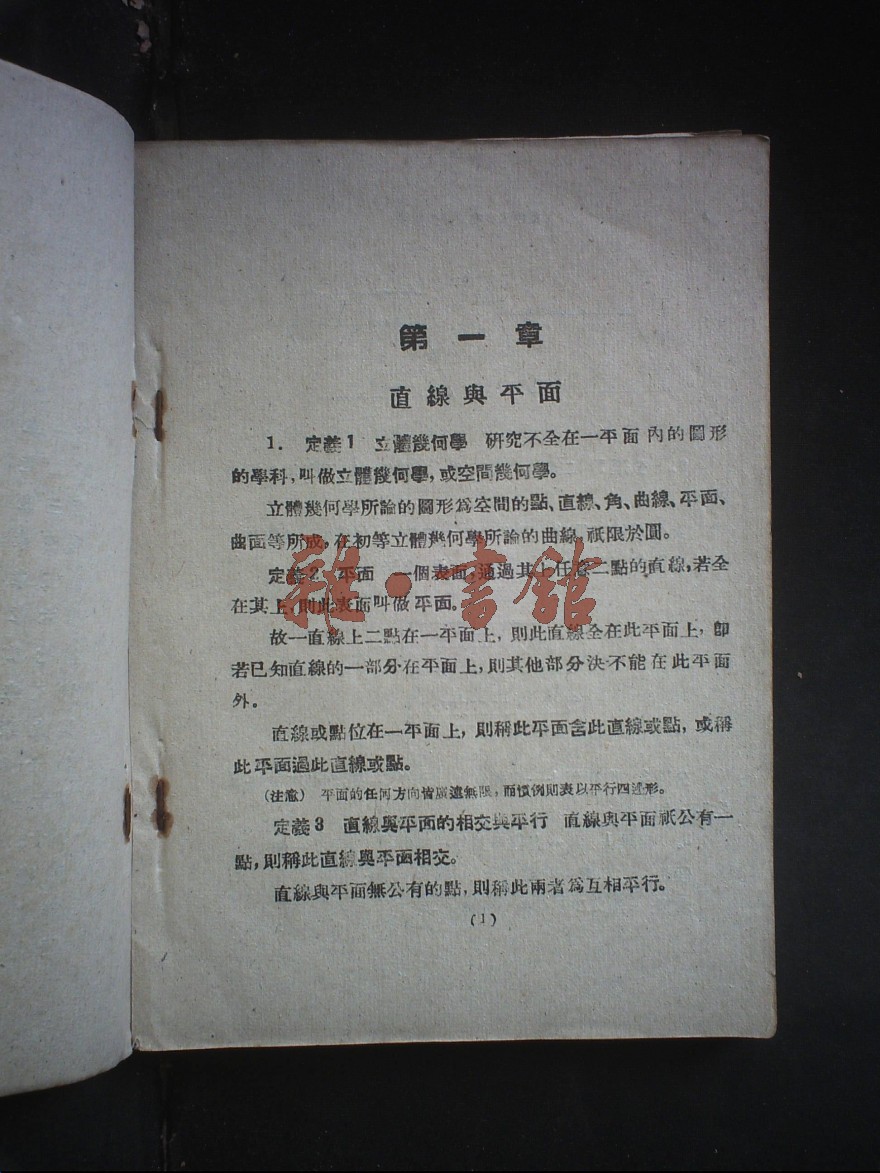 第一章
直線與平面
1. 定義1 立體幾何學 研究不全在一平面內的圖形
的學科,叫做立體幾何學,或空間幾何學。
立體幾何學所論的圖形爲空間的點、直線、角、曲線、平面、
曲面等所成,在初等立體幾何學所論的曲線,祇限於圓。
定義2 平面 一個表面,通過其上任意二點的直線,若全
在其上,則此表面叫做平面。
故一直線上二點在一平面上,則此直線全在此平面上,卽
若已知直線的一部分在平面上,則其他部分決不能在此平面
外。
直線或點位在一平面上,則稱此平面含此直線或點,或稱
此平面過此直線或點。
(注意) 平面的任何方向皆廣遠無限,而慣例則表以平行四邊形。
定義3 直線與平面的相交與平行 直線與平面祇公有一
點,則稱此直線與平面相交。
直線與平面無公有的點,則稱此兩者爲互相平行。
(1)
雜·書館